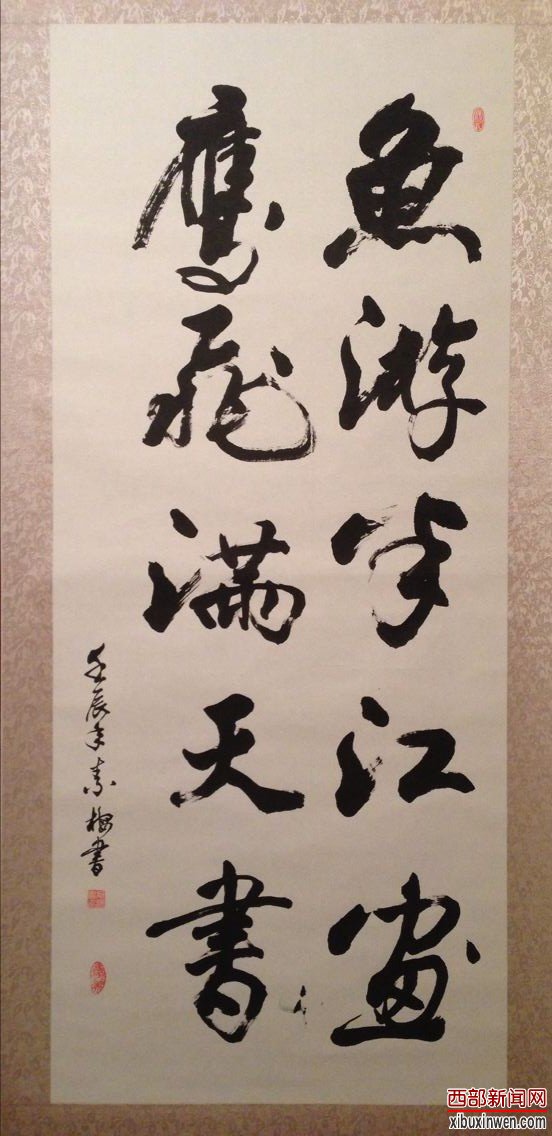 魚游半江畫
鷹飛滿天書
壬辰年素梅書
西部新闻网
xibuxinwen.com